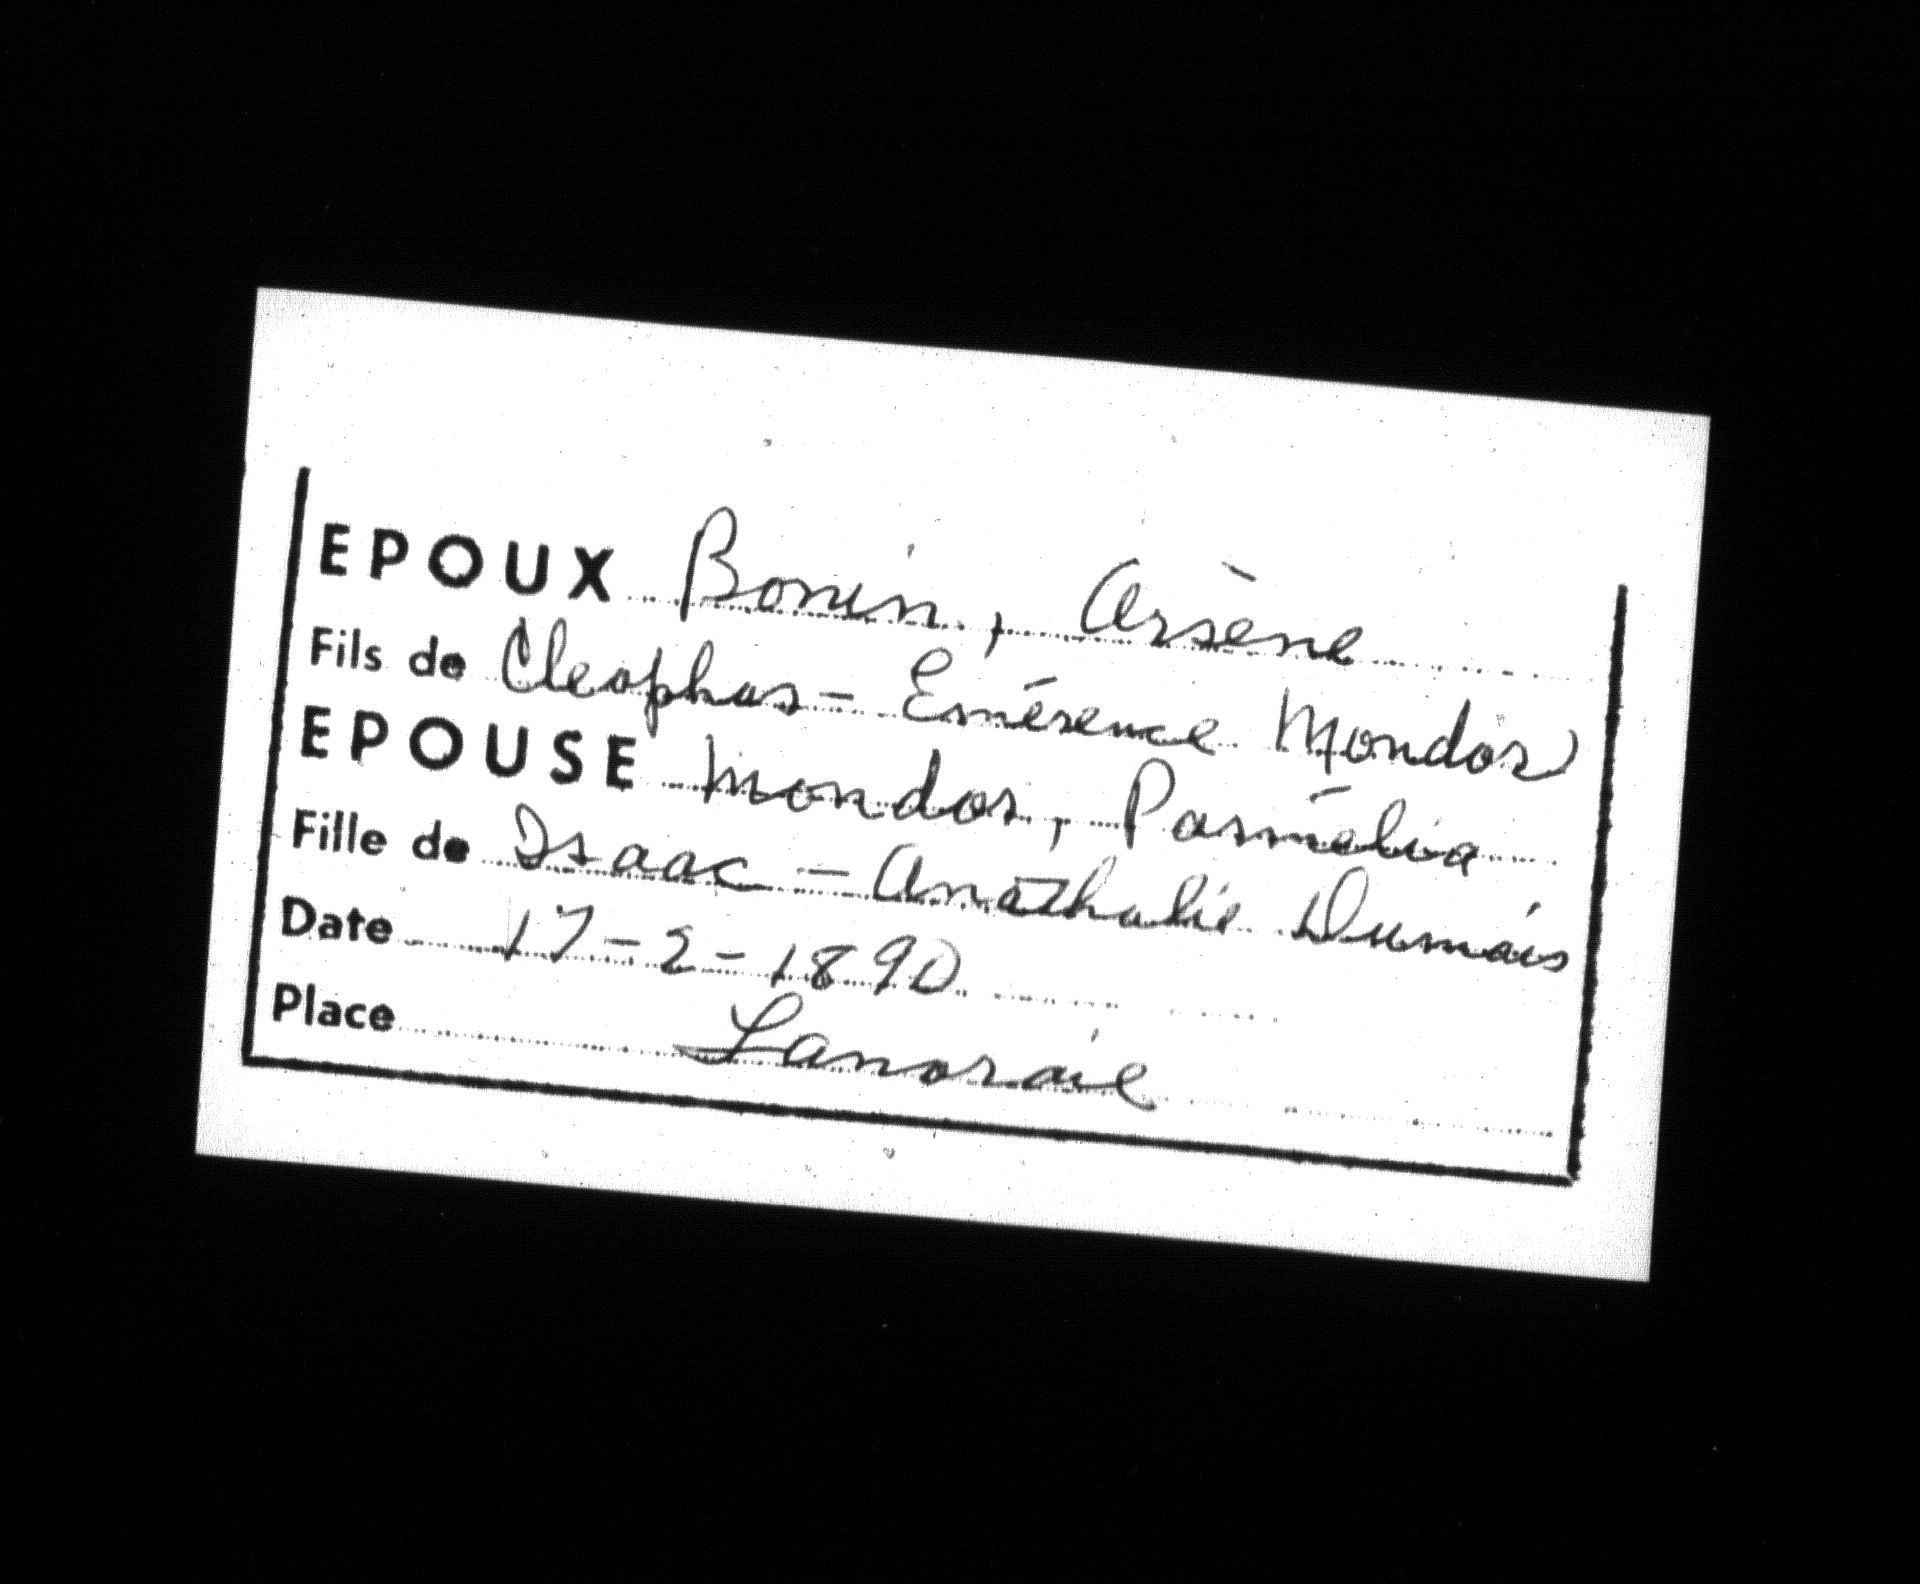 EPOUX Bonin, Arsène
Fils de Cleophas - Emérence Mondor
EPOUSE Mondor, Parmélia
Fille de Isaac - Anathalie Dumais
Date 17-2-1890
Place Lanoraie